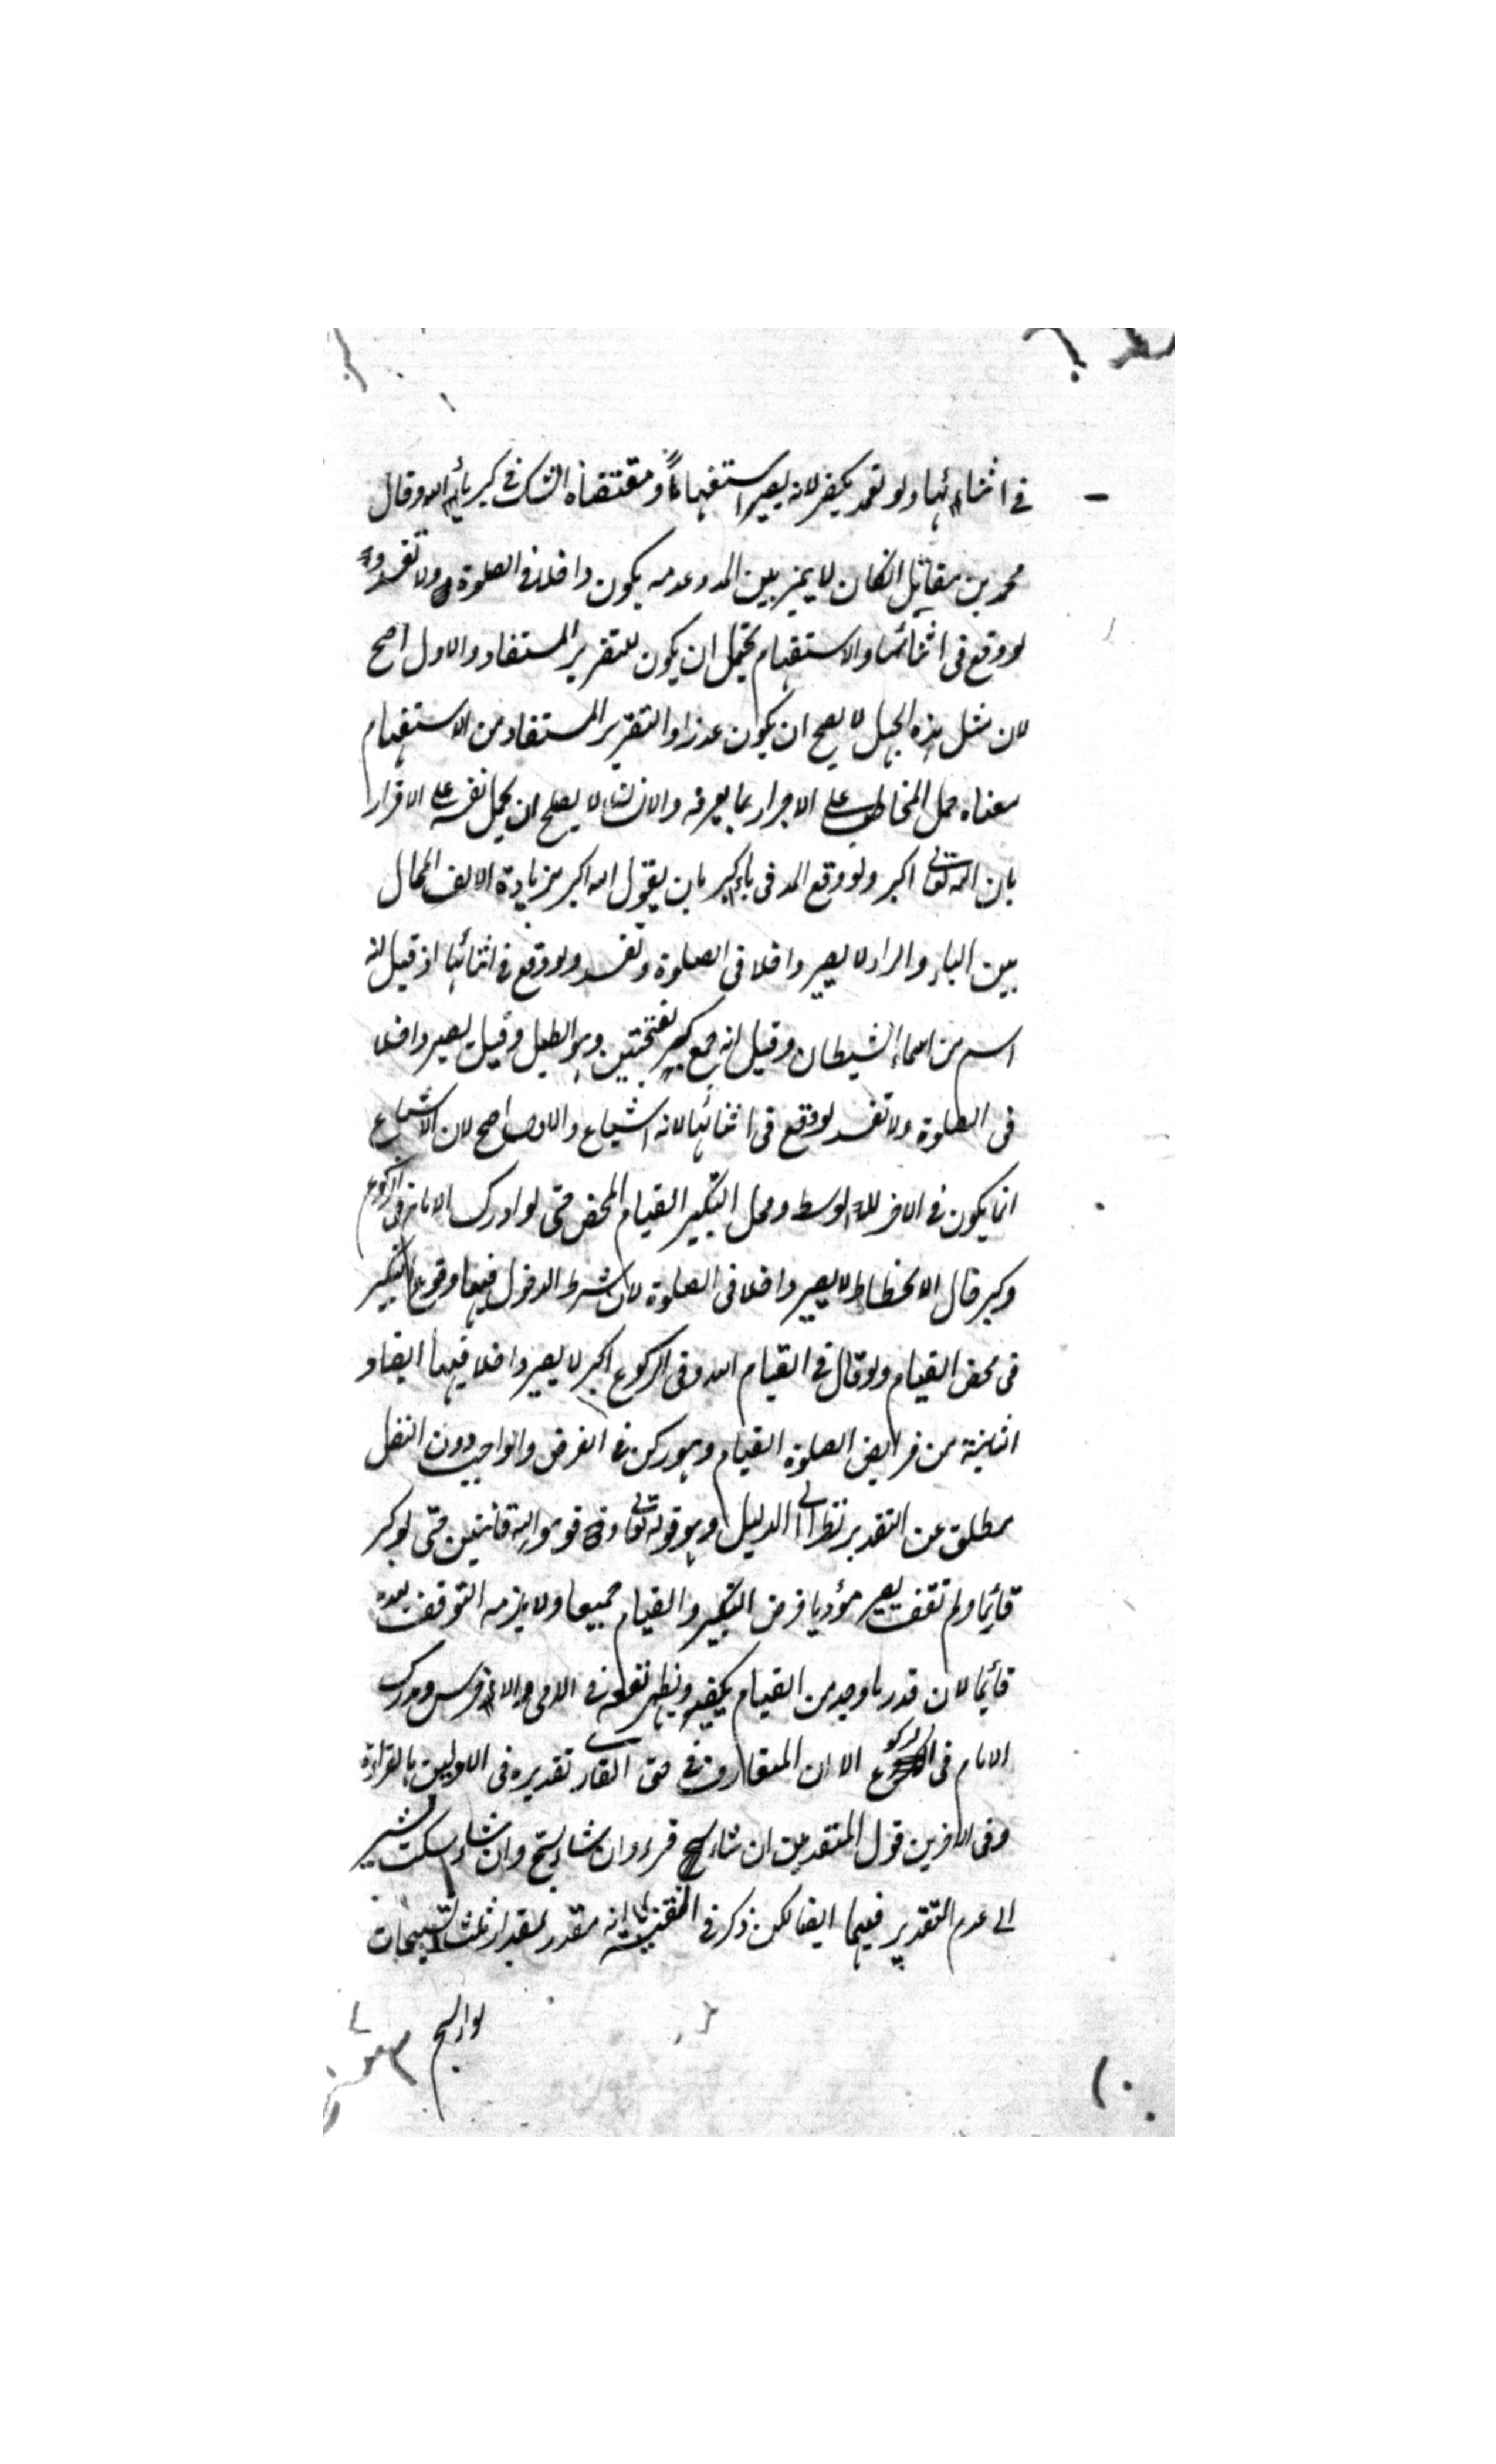 في اثنائها ولو تعمد يكفر لانه يصير استفهاما ومقتضاه الشك في كبرياء الله وقال
محمد بن مقاتل ان كان لا يميز بين المد وعدمه يكون داخلا في الصلوة ولا تفسد
لو وقع في اثنائها والاستفهام يحتمل ان يكون للتقرير المستفاد والاول اصح
لان مثل هذه الجهل لا يصح ان يكون عذرا والتقرير المستفاد من الاستفهام
معناه حمل المخاطب على الاقرار بما يعرفه والانسان لا يصلح ان يحمل نفسه على الاقرار
بان الله تعالى اكبر ولو وقع المد في باء اكبر بان يقول الله اكبار بزيادة الالف الحال
بين الباء والراء لا يصير داخلا في الصلوة وتفسد ولو وقع في اثنائها اذ قيل انه
اسم من اسماء الشيطان وقيل انه جمع كبر بفتحتين وهو الطبل وقيل يصير داخلا
في الصلوة ولا تفسد لو وقع في اثنائها لانه اشباع والاول اصح لان الاشباع
انما يكون في الاخر لا الوسط ومحل التكبير القيام المحض حتى لو ادرك الامام في الركوع
وكبر حال الانحطاط لا يصير داخلا في الصلوة لان شرط الدخول فيها وقوع التكبير
في محض القيام ولو قال في القيام الله وفي الركوع اكبر لا يصير داخلا فيها ايضا و
الثانية من فرايض الصلوة القيام وهو ركن في الفرض والواجب دون النفل
مطلق عن التقدير نظرا الى الدليل وهو قوله تعالى وقوموا لله قانتين حتى لو كبر
قائما ولم تقف يصير مؤديا فرض التكبير والقيام جميعا ولا يلزمه التوقف بعده
قائما لان قدر ما وجد من القيام يكفيه ويظهر نفعه في الامي والاخرس ومدرك
الامام في الركوع الا ان المتعارف في حق القارى تقديره في الاوليين بالقراءة
وفي الاخرين قول المتقدمين ان شاء قرء وان شاء سبح وان شاء سكت يشير
الى عدم التقدير فيهما ايضا لكن ذكر في انه مقدر بمقدار ثلث تسبيحات